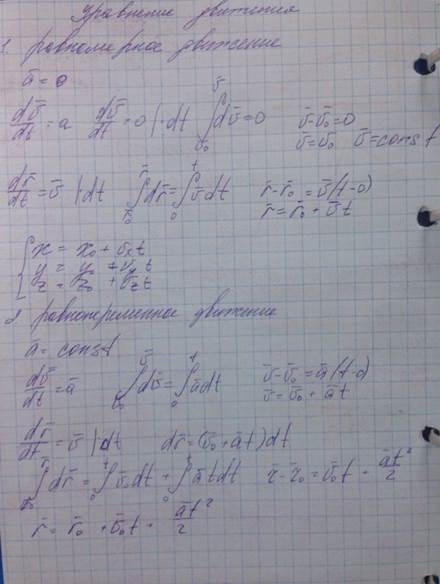 Уравнение движения
1 равномерное движение
a̅ = 0
dv̅/dt = a dv̅/dt = 0 |·dt ∫_{v̅₀}^{v̅} dv̅ = 0 v̅-v̅₀ = 0
v̅ = v̅₀ v̅ = const
dr̅/dt = v̅ | dt ∫_{r̅₀}^{r̅} dr̅ = ∫_{0}^{t} v̅ dt r̅-r̅₀ = v̅(t-0)
r̅ = r̅₀ + v̅ t
x = x₀ + v_x t
y = y₀ + v_y t
z = z₀ + v_z t
2 равнопеременное движение
a̅ = const
dv̅/dt = a̅ ∫_{v̅₀}^{v̅} dv̅ = ∫_{0}^{t} a̅ dt v̅-v̅₀ = a̅(t-0)
v̅ = v̅₀ + a̅t
dr̅/dt = v̅ | dt dr̅ = (v̅₀ + a̅t) dt
∫_{r̅₀}^{r̅} dr̅ = ∫_{0}^{t} v̅₀ dt + ∫_{0}^{t} a̅ t dt r̅-r̅₀ = v̅₀t + a̅t²/2
r̅ = r̅₀ + v̅₀t + a̅t²/2